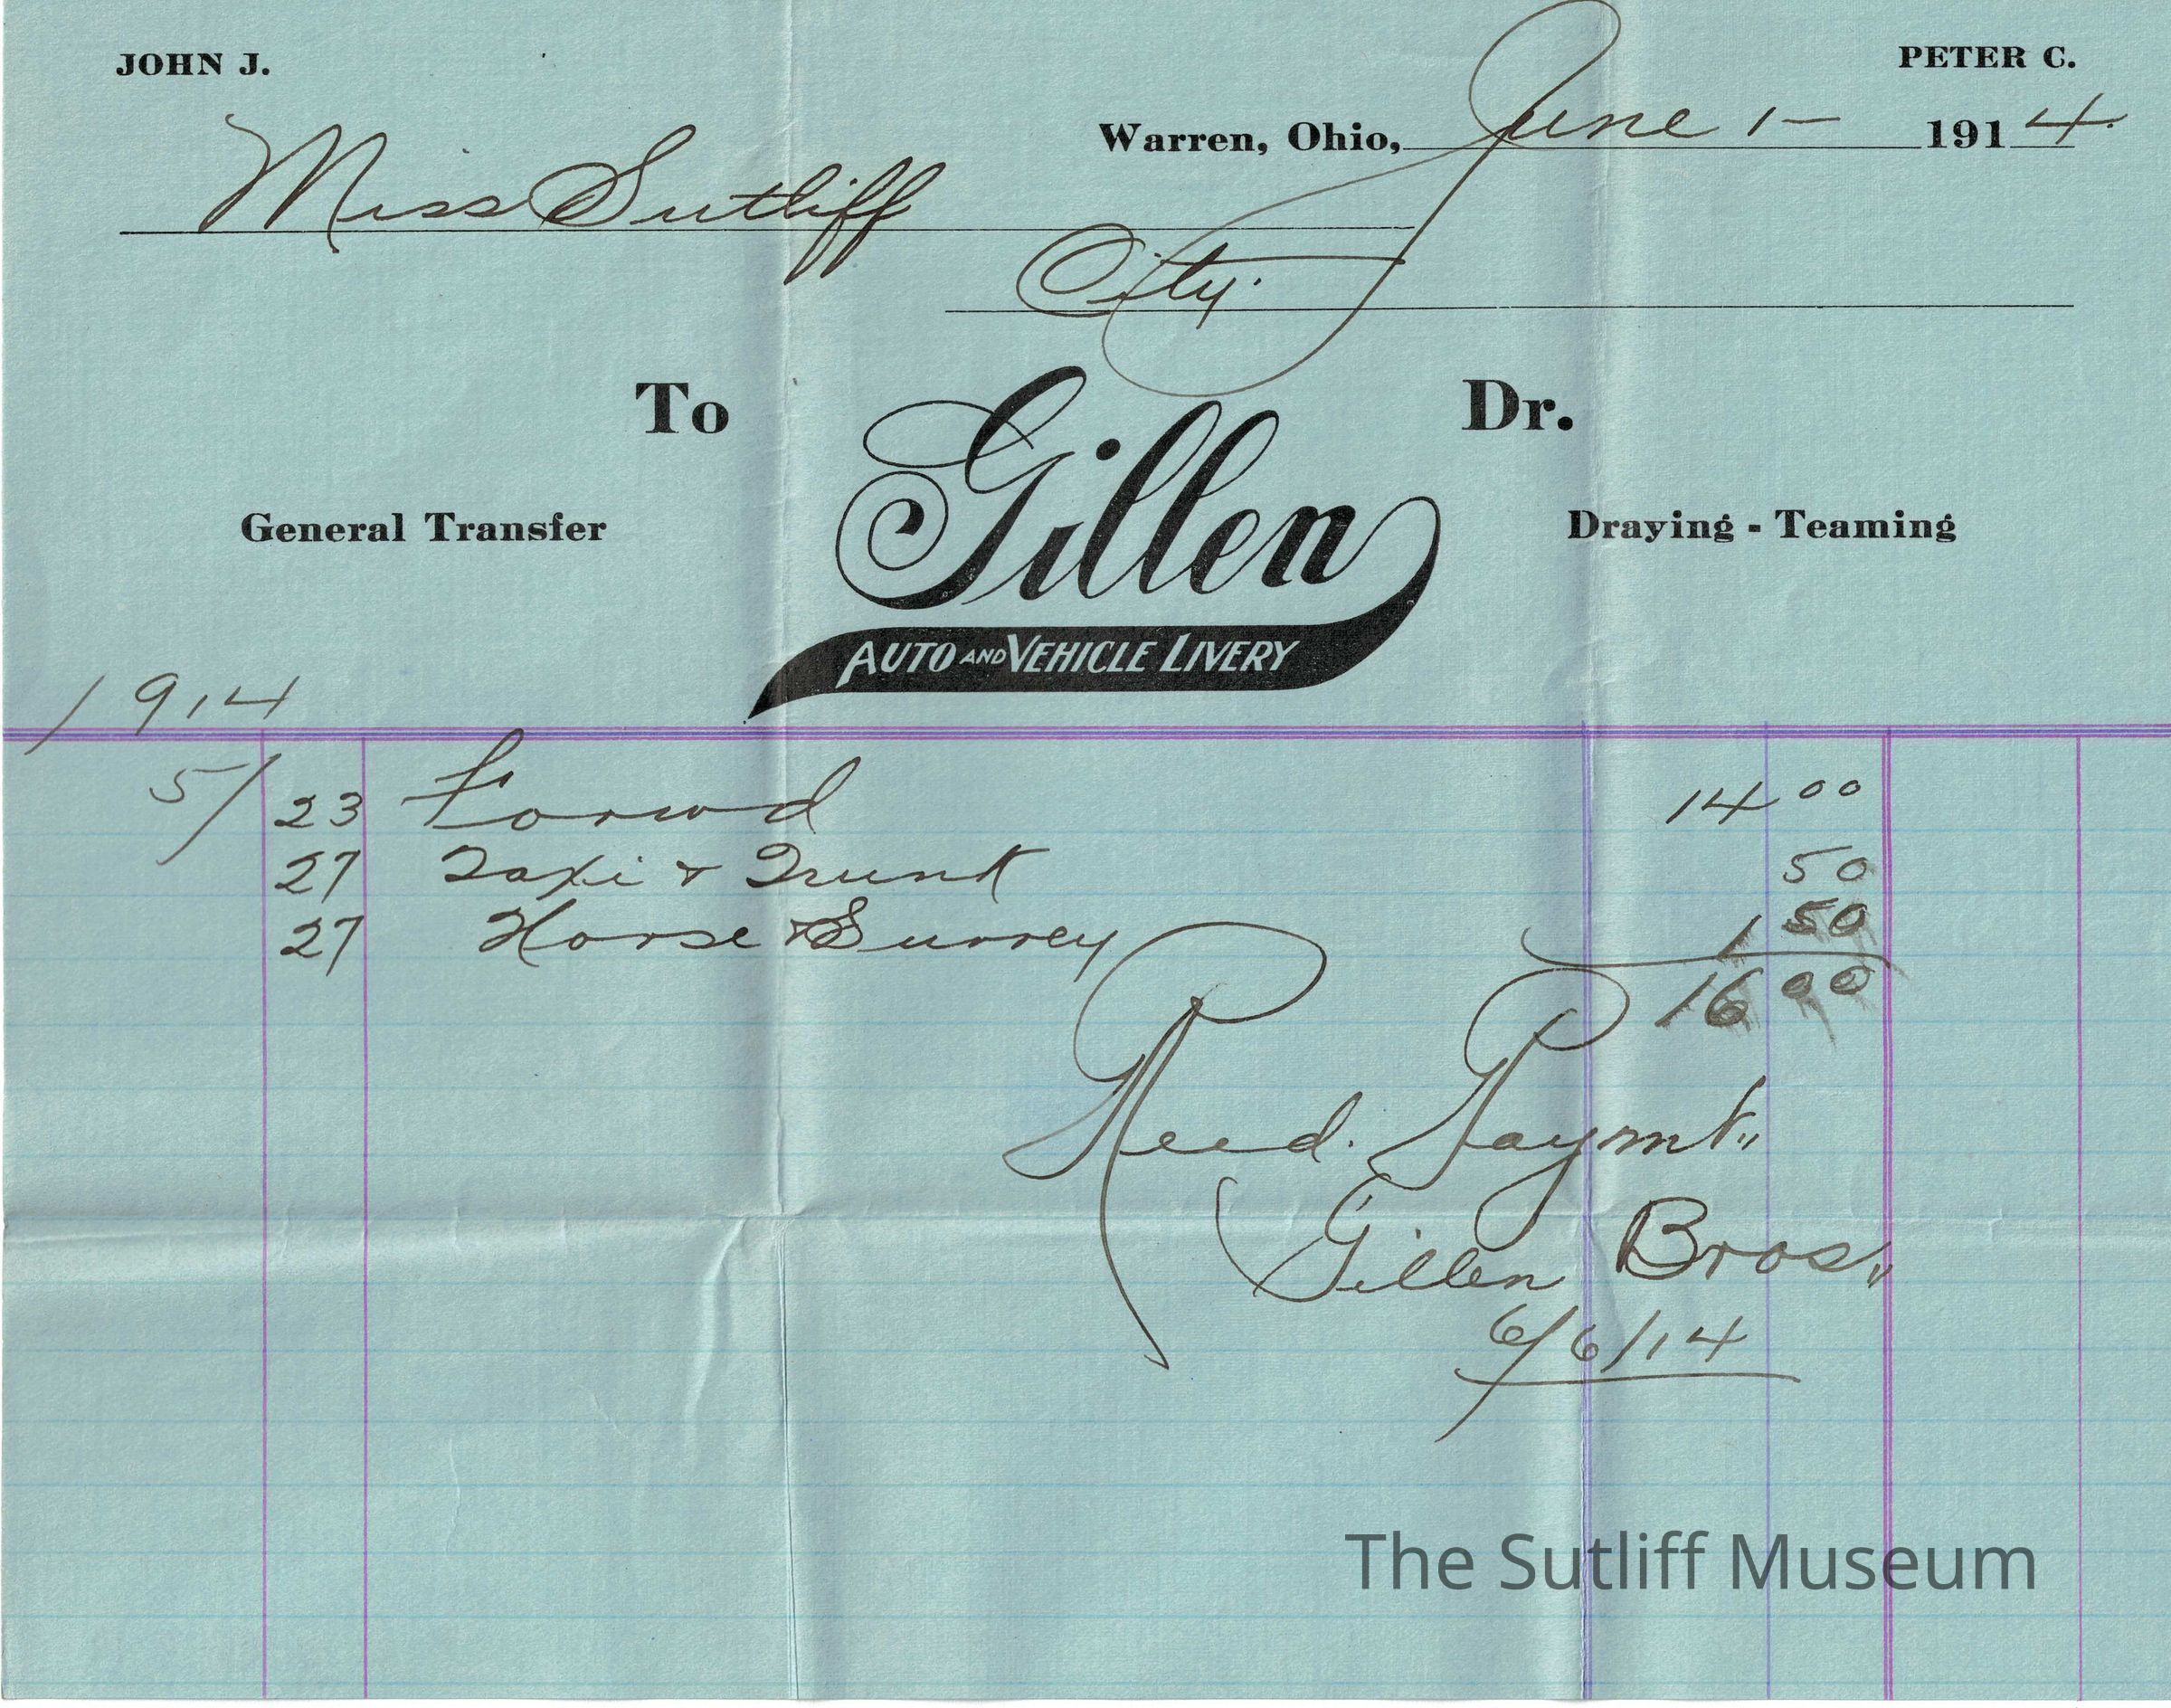 JOHN J. PETER C.
Warren, Ohio, June 1 - 1914.
Miss Sutliff
City.
To Gillen Dr.
General Transfer Draying - Teaming
AUTO AND VEHICLE LIVERY
1914
5/23 Forwd 14 00
27 Taxi & Trunk 50
27 Horse & Surrey 1 50
16 00
Recd. Paymt.
Gillen Bros.
6/6/14
The Sutliff Museum